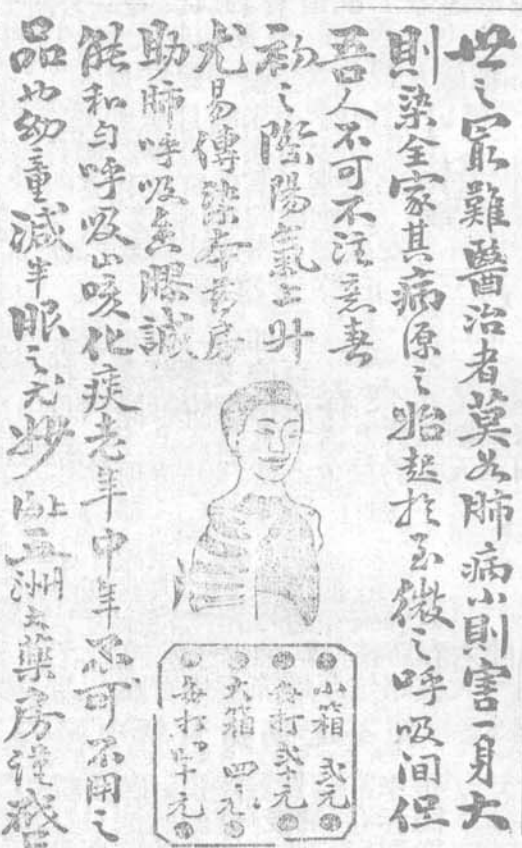 世之最難醫治者莫如肺病小則害一身大
則染全家其病原之始起於至微之呼吸間但
吾人不可不注意春
初之際陽氣上升
尤易傳染本藥房
助肺呼吸膠誠
能和勻呼吸止咳化痰老年中年不可不用之
品也幼童減半服之尤妙 上海五洲大藥房謹啓
小箱 弍元
每打弍十元
大箱 四元
每打四十元